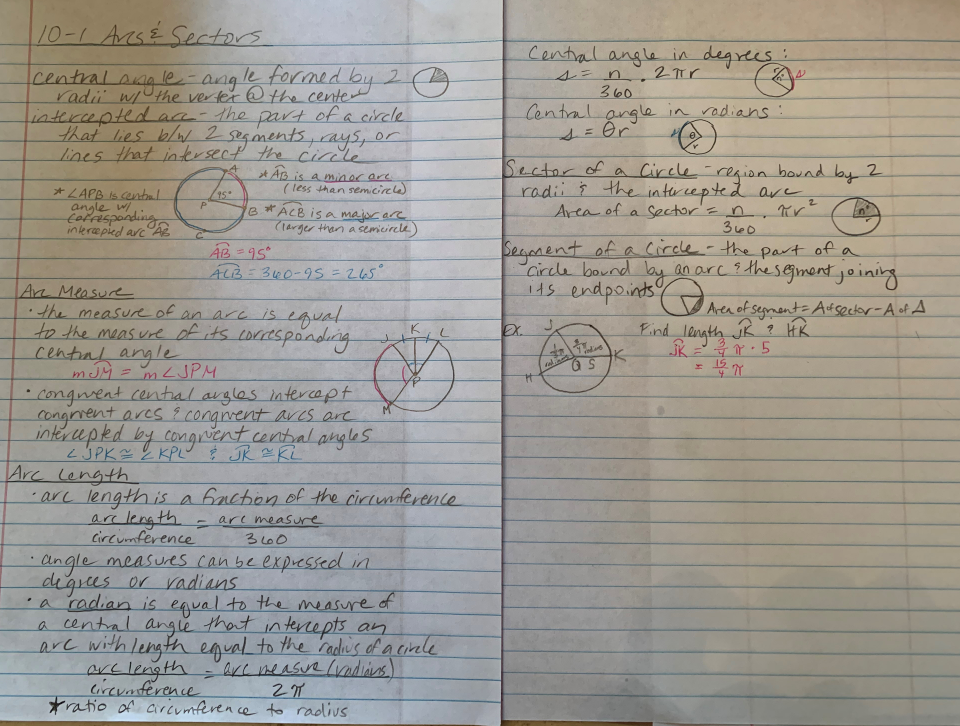 10-1 Arcs & Sectors
central angle - angle formed by 2
radii w/ the vertex @ the center
intercepted arc - the part of a circle
that lies b/w 2 segments, rays, or
lines that intersect the circle
* ∠APB is central
angle w/
corresponding
intercepted arc AB
A
95°
P
B
C
* AB is a minor arc
(less than semicircle)
* ACB is a major arc
(larger than a semicircle)
AB = 95°
ACB = 360-95 = 265°
Arc Measure
· the measure of an arc is equal
to the measure of its corresponding
central angle
mJM = m∠JPM
J K L
P
M
· congruent central angles intercept
congruent arcs & congruent arcs are
intercepted by congruent central angles
∠JPK ≅ ∠KPL & JK ≅ KL
Arc Length
· arc length is a fraction of the circumference
arc length = arc measure
circumference 360
· angle measures can be expressed in
degrees or radians
· a radian is equal to the measure of
a central angle that intercepts an
arc with length equal to the radius of a circle
arc length = arc measure (radians)
circumference 2π
*ratio of circumference to radius
Central angle in degrees:
s = n/360 · 2πr
n° r s
Central angle in radians:
s = θr
θ r s
Sector of a Circle - region bound by 2
radii & the intercepted arc
Area of a sector = n/360 · πr²
n°
Segment of a Circle - the part of a
circle bound by an arc & the segment joining
its endpoints
Area of segment = A of sector - A of Δ
Ex.
J
K
H
Q 5
radians
radians
Find length JK & HK
JK = 3/4 π · 5
= 15/4 π